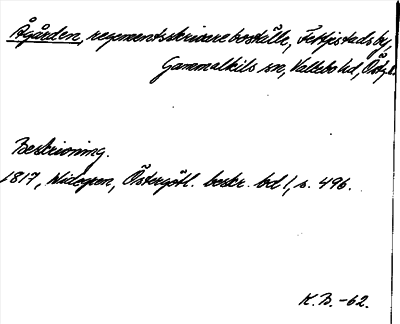 Ågården, regementsskrivareboställe, Fettjestads by,
Gammalkils sn, Valkebo hd, Östg.
Beskrivning.
1817, Widegren, Östergötl. beskr. bd 1, s. 496.
K.B. -62.